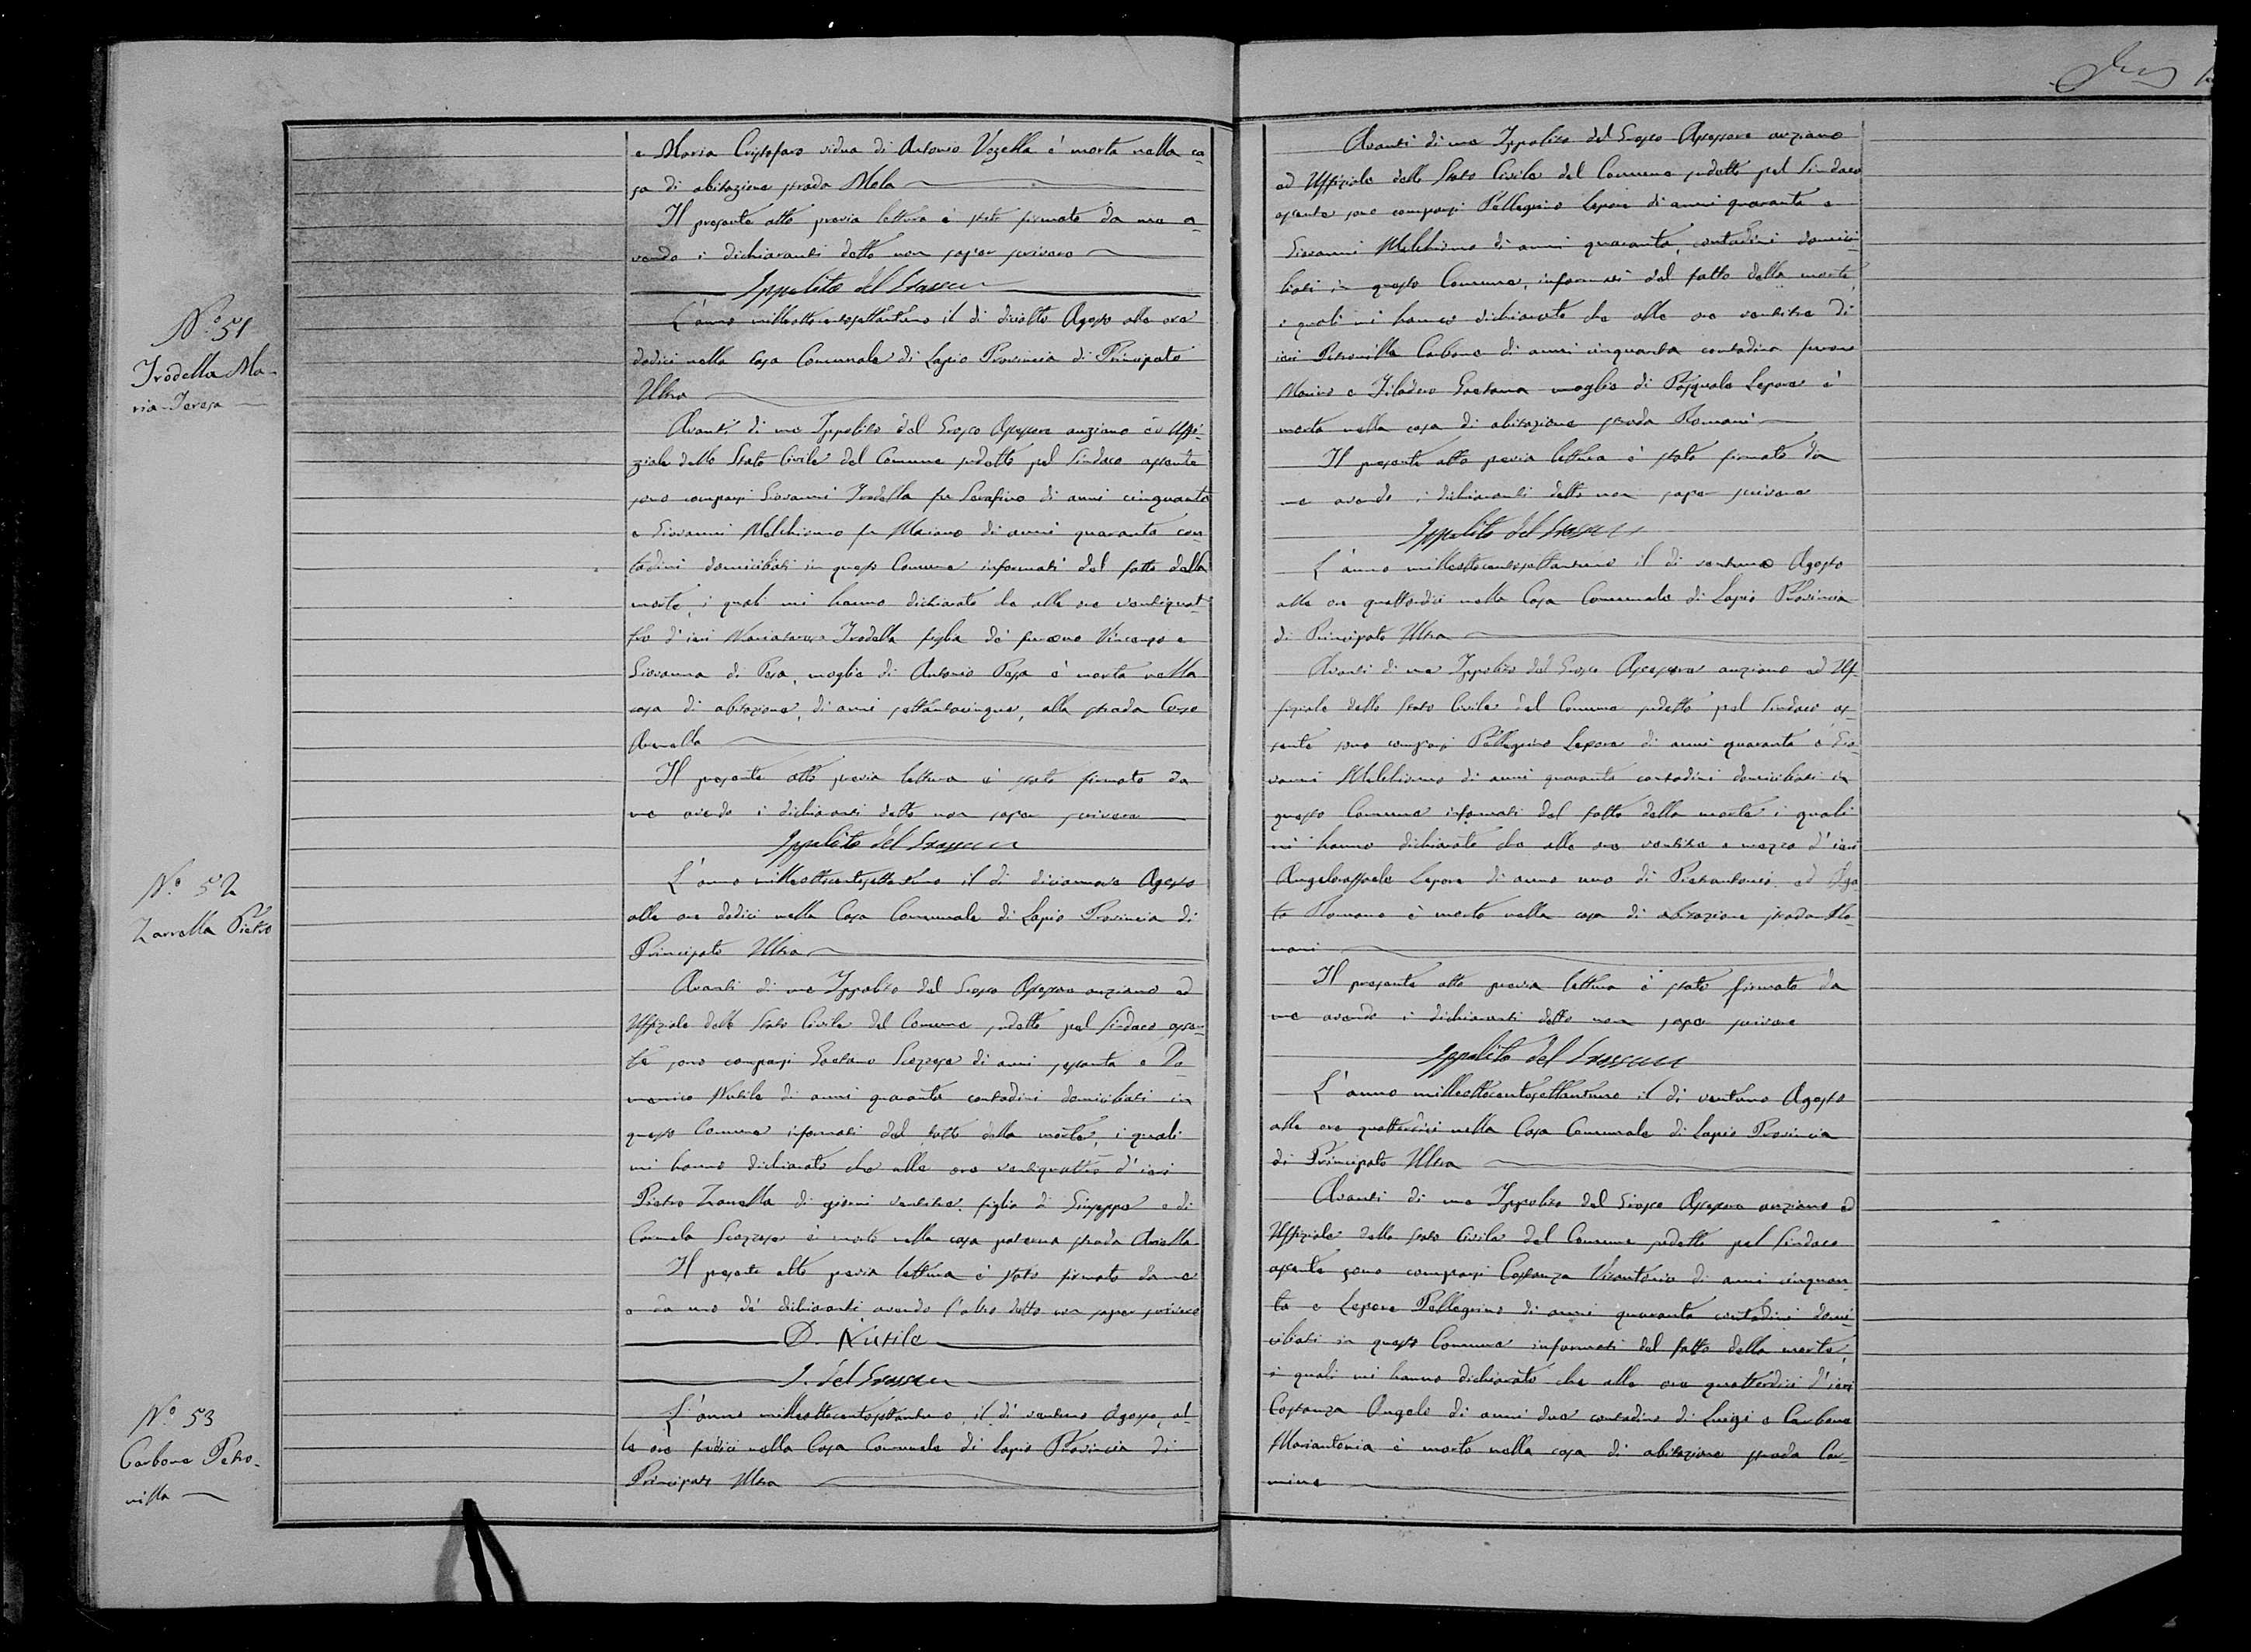 e Maria Cristofaro vidua di Antonio Vozella è morta nella ca-
sa di abitazione strada Mela
Il presente atto previa lettura è stato firmato da me a-
vendo i dichiaranti detto non saper scrivere
Ippolito del Grosso
N.° 51
Trodella Ma-
ria Teresa
L'anno milleottocentosettantuno il di diciotto Agosto alle ore
dodici nella Casa Comunale di Lapio Provincia di Principato
Ultra
Avanti di me Ippolito del Grosso Assessore anziano ed Uffi-
ziale dello Stato Civile del Comune sudetto pel Sindaco assente
sono comparsi Giovanni Trodella fu Serafino di anni cinquanta
e Giovanni Melchionno fu Mariano di anni quaranta con-
tadini domiciliati in questo Comune informati del fatto della
morte, i quali mi hanno dichiarato che alle ore ventiquat-
tro d'ieri Mariateresa Trodella figlia de' furono Vincenzo e
Giovanna di Pesa, moglie di Antonio Pesa è morta nella
casa di abitazione, di anni settantacinque, alla strada Corso
Il presente atto previa lettura è stato firmato da
me avendo i dichiaranti detto non saper scrivere
Ippolito del Grosso
N.° 52
Zarrella Pietro
L'anno milleottocentosettantuno il di diciannove Agosto
alle ore dodici nella Casa Comunale di Lapio Provincia di
Principato Ultra
Avanti di me Ippolito del Grosso Assessore anziano ed
Uffiziale dello Stato Civile del Comune sudetto pel Sindaco assen-
te sono comparsi Gaetano Scozzese di anni sessanta e Do-
menico Nutile di anni quaranta contadini domiciliati in
questo Comune informati del fatto della morte, i quali
mi hanno dichiarato che alle ore ventiquattro d'ieri
Pietro Zarrella di giorni ventitre, figlio di Giuseppe e di
Carmela Scozzese è morto nella casa paterna strada Arialla
Il presente atto previa lettura è stato firmato da me
e da uno de' dichiaranti avendo l'altro detto non saper scrivere
D. Nutile
I. del Grosso
N.° 53
Carbone Petro-
nilla
L'anno milleottocentosettantuno, il di ventuno Agosto, al-
le ore tredici nella Casa Comunale di Lapio Provincia di
Principato Ultra
Avanti di me Ippolito del Grosso Assessore anziano
ed Uffiziale dello Stato Civile del Comune sudetto pel Sindaco
assente sono comparsi Pellegrino Lepore di anni quaranta e
Giovanni Melchionno di anni quaranta, contadini domici-
liati in questo Comune, informati del fatto della morte,
i quali mi hanno dichiarato che alle ore ventitre di
ieri Petronilla Carbone di anni cinquanta contadina furono
Marino e Filadoro Gaetana moglie di Pasquale Lepore è
morta nella casa di abitazione strada Romani
Il presente atto previa lettura è stato firmato da
me avendo i dichiaranti detto non saper scrivere
Ippolito del Grosso
L'anno milleottocentosettantuno il di ventuno Agosto
alle ore quattordici nella Casa Comunale di Lapio Provincia
di Principato Ultra
Avanti di me Ippolito del Grosso Assessore anziano ed Uf-
fiziale dello Stato Civile del Comune sudetto pel Sindaco as-
sente sono comparsi Pellegrino Lepore di anni quaranta e Gio-
vanni Melchionno di anni quaranta contadini domiciliati in
questo Comune informati del fatto della morte i quali
mi hanno dichiarato che alle ore ventitre e mezza d'ieri
Angeloraffaele Lepore di anno uno di Pietrantonio ed Aga-
ta Romano è morto nella casa di abitazione strada Ro-
mani
Il presente atto previa lettura è stato firmato da
me avendo i dichiaranti detto non saper scrivere
Ippolito del Grosso
L'anno milleottocentosettantuno il di ventuno Agosto
alle ore quattordici nella Casa Comunale di Lapio Provincia
di Principato Ultra
Avanti di me Ippolito del Grosso Assessore anziano ed
Uffiziale dello Stato Civile del Comune sudetto pel Sindaco
assente sono comparsi Costanza Vitantonio di anni cinquan-
ta e Lepore Pellegrino di anni quaranta contadini domi-
ciliati in questo Comune informati del fatto della morte,
i quali mi hanno dichiarato che alle ore quattordici d'ieri
Costanza Angelo di anni due contadino di Luigi e Carbone
Mariantonia è morto nella casa di abitazione strada Car-
mine